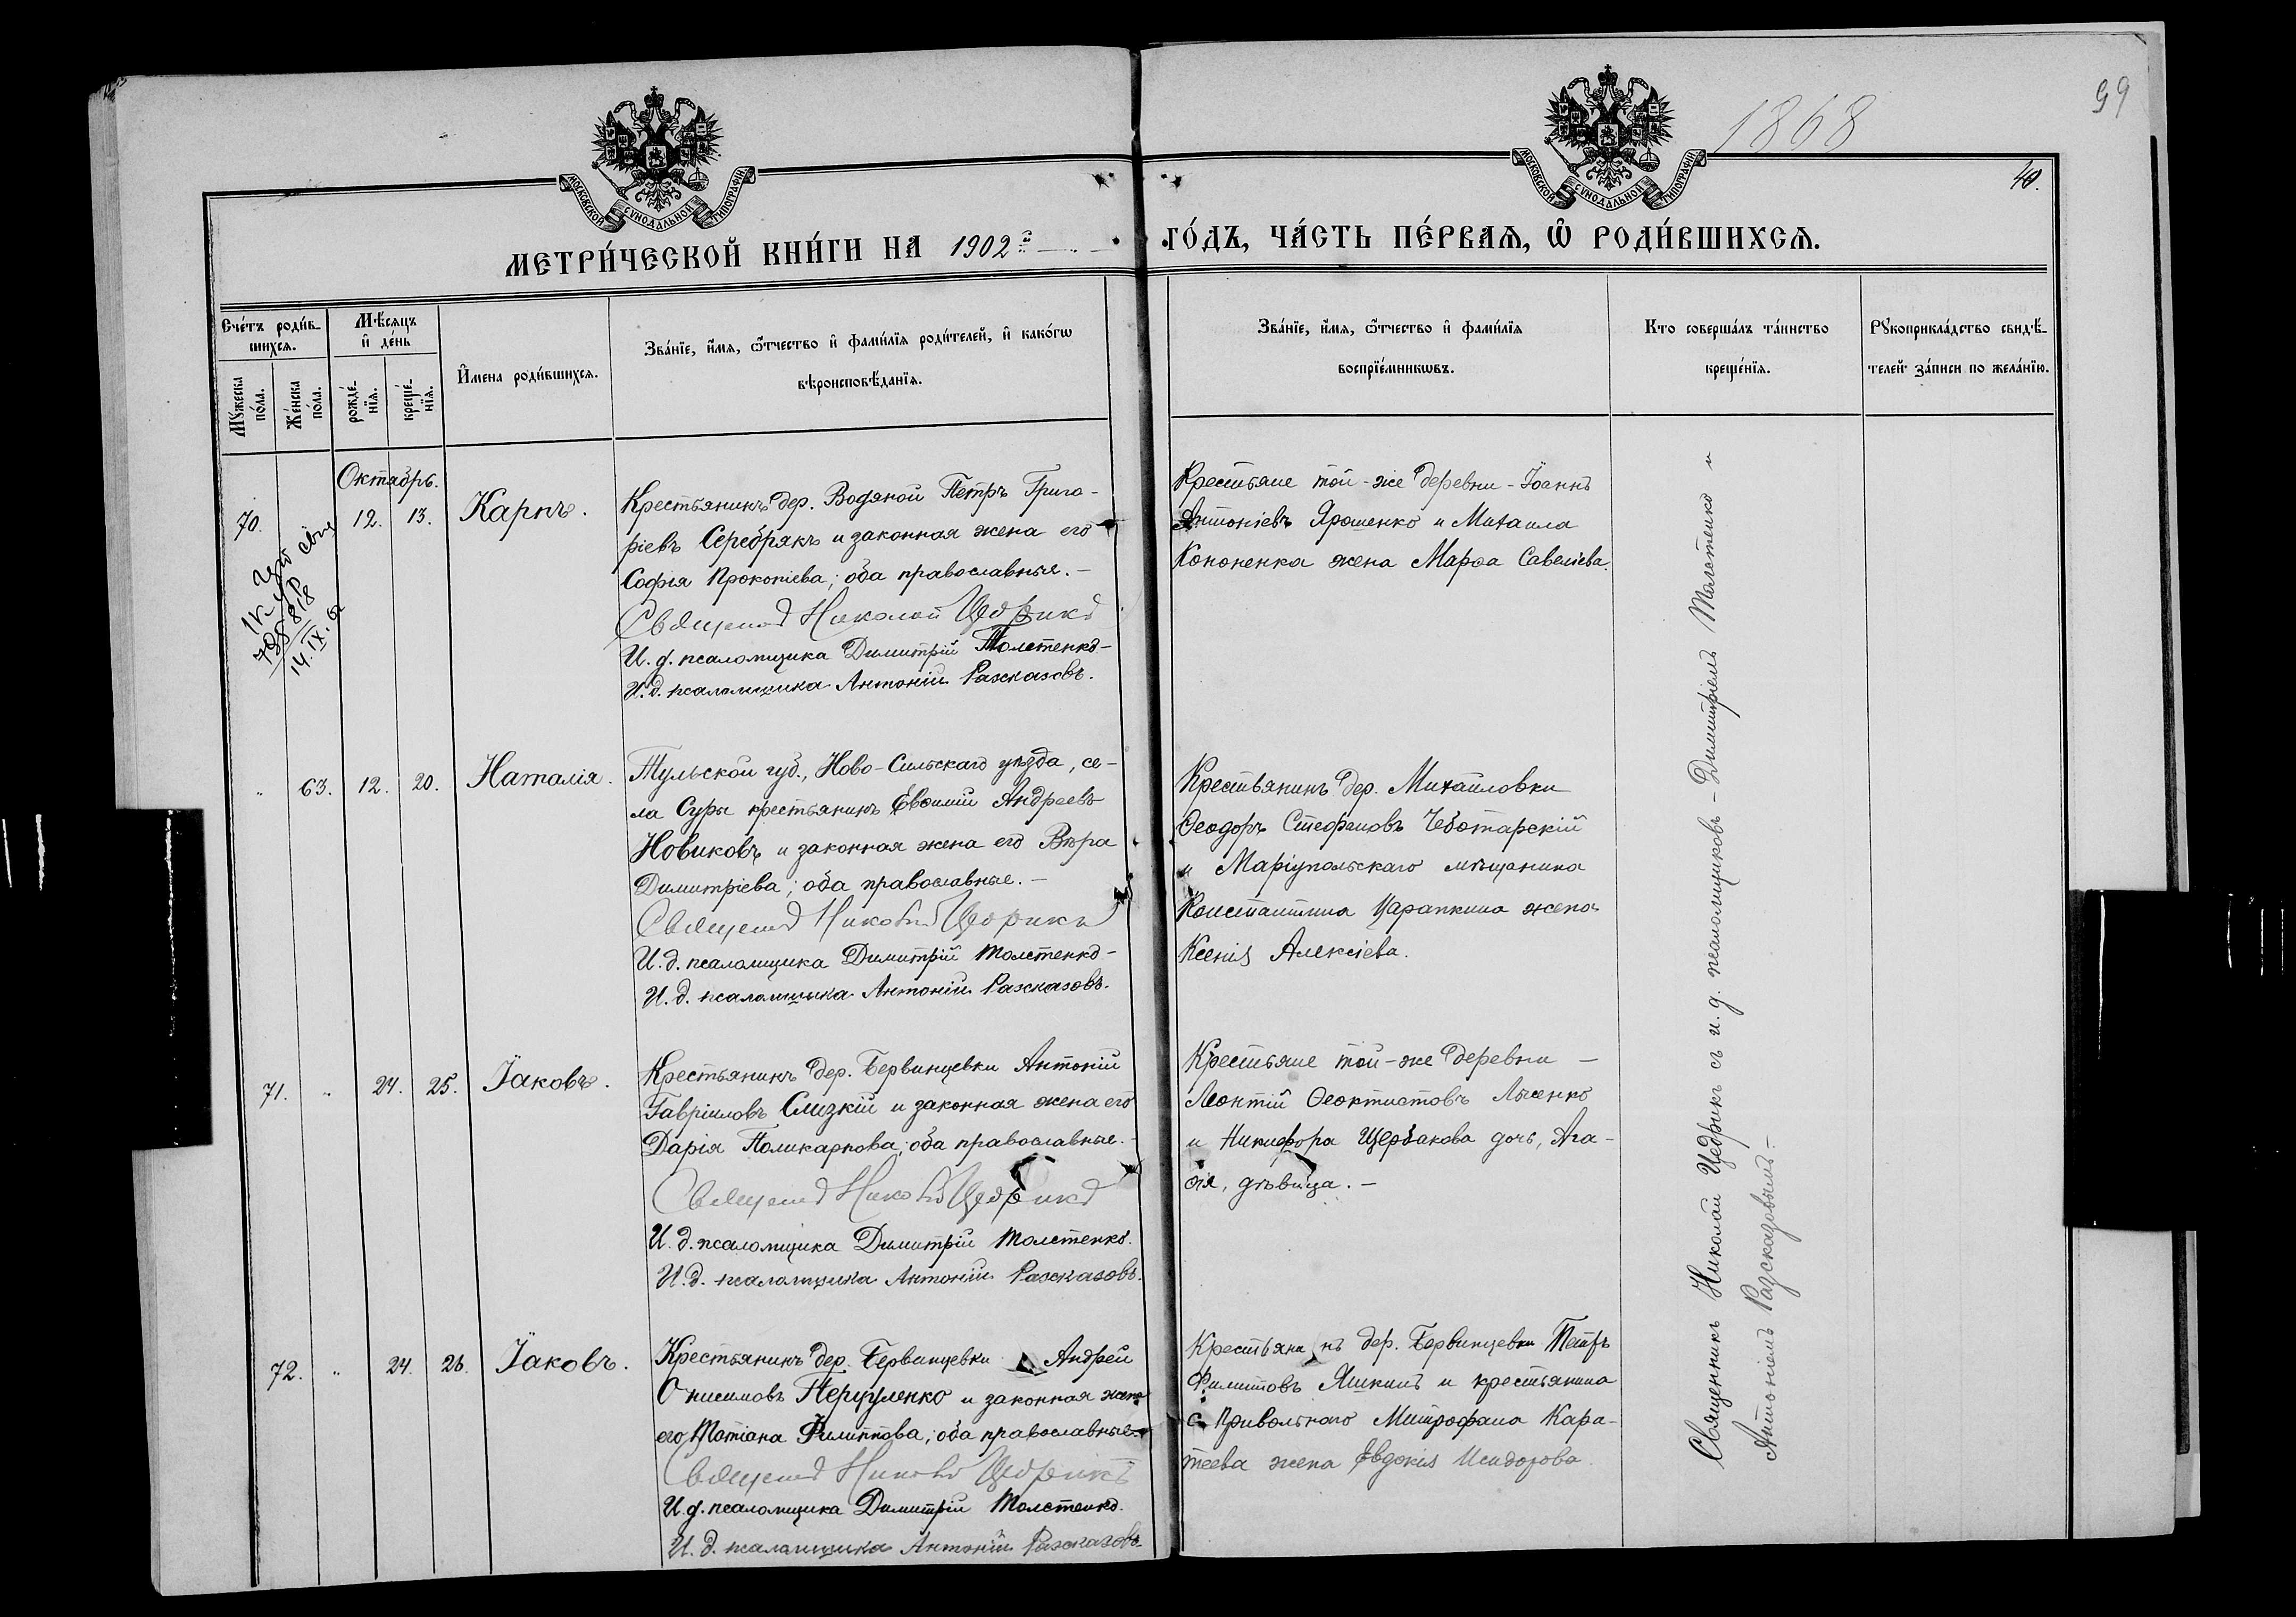 1868
99
40.
МОСКОВСКОЙ СѴНОДАЛЬНОЙ ТИПОГРАФІИ
МОСКОВСКОЙ СѴНОДАЛЬНОЙ ТИПОГРАФІИ
МЕТРИ́ЧЕСКОЙ КНИ́ГИ НА 1902й
ГО́ДЪ, ЧА́СТЬ ПЕ́РВАѦ, Ѡ҆ РОДИ́ВШИХСѦ.
Сче́тъ роди́в-
шихсѧ.
Мꙋжеска
по́ла.
Же́нска
по́ла.
Мѣ́сяцъ
и҆ де́нь
рожде́-
нїѧ.
креще́-
нїѧ.
И҆мена роди́вшихсѧ.
Зва́нїе, и҆́мѧ, ѻ҆́тчество и҆ фами́лїѧ роди́телей, и҆ како́гѡ
вѣроисповѣ́данїѧ.
Зва́нїе, и҆́мѧ, ѻ҆́тчество и҆ фами́лїѧ
воспрїе́мникѡвъ.
Кто соверша́лъ та́инство
креще́нїѧ.
Рꙋкоприкла́дство свидѣ́-
телей за́писи по жела́нїю.
Октябрь.
70.
12.
13.
Карпъ.
Крестьянинъ дер. Водяной Петръ Григо-
ріевъ Серебрякъ и законная жена его
Софія Прокопіева; оба православные. –
Священникъ Николай Цедрикъ
И. д. псаломщика Димитрій Толстенко-
И. д. псаломщика Антоній Разсказовъ.
Крестьяне той-же деревни - Іоаннъ
Антоніевъ Ярошенко и Михаила
Кононенка жена Марѳа Савеліева.
14.IX.
"
63.
12.
20.
Наталія.
Тульской губ., Ново-Сильскаго уѣзда, се-
ла Суры крестьянинъ Евѳимій Андреевъ
Новиковъ и законная жена его Вѣра
Димитріева; оба православные. –
Священникъ Николай Цедрикъ
И. д. псаломщика Димитрій Толстенко-
И. д. псаломщика Антоній Разсказовъ.
Крестьянинъ дер. Михайловки
Ѳеодоръ Стефановъ Чеботарскій
и Маріупольскаго мѣщанина
Константина Царапкина жена
Ксенія Алексіева.
71.
"
24.
25.
Іаковъ.
Крестьянинъ дер. Бервинцевки Антоній
Гавріиловъ Слизкій и законная жена его
Дарія Поликарпова; оба православные. –
Священникъ Николай Цедрикъ
И. д. псаломщика Димитрій Толстенко.
И. д. псаломщика Антоній Разсказовъ.
Крестьяне той-же деревни –
Леонтій Ѳеоктистовъ Лысенко
и Никифора Щербакова дочь, Ага-
ѳія, дѣвица. –
72.
"
24.
26.
Іаковъ.
Крестьянинъ дер. Бервинцевки Андрей
Онисимовъ Перцуленко и законная жена
его Татіана Филиппова; оба православные
Священникъ Николай Цедрикъ
И. д. псаломщика Димитрій Толстенко.
И. д. псаломщика Антоній Разсказовъ.
Крестьянинъ дер. Бервинцевки Петръ
Филиповъ Яшкинъ и крестьянина
с. Привольнаго Митрофана Кара-
теева жена Евдокія Исидорова
Священникъ Николай Цедрикъ съ и. д. псаломщиковъ - Димитріемъ Толстенко и
Антоніемъ Разсказовымъ. –